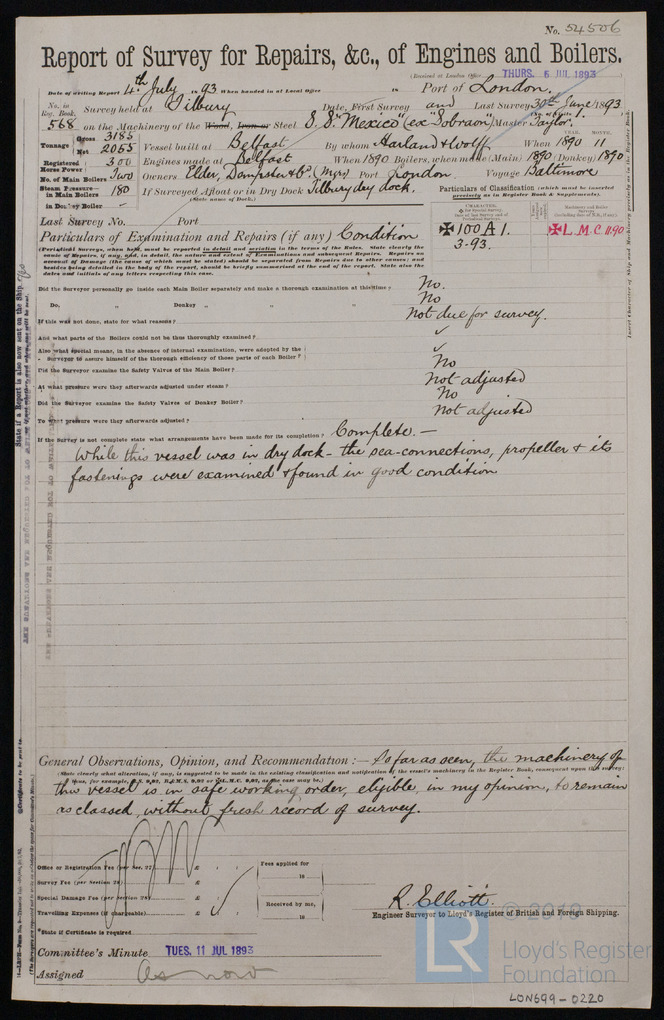 No. 54506
Report of Survey for Repairs, &c., of Engines and Boilers.
(Received at London Office THURS. 6 JUL 1893
Date of writing Report 4th July 1893 When handed in at Local Office 18 Port of London.
No. in Reg. Book. 568 Survey held at Tilbury Date, First Survey and Last Survey 30th June 1893
on the Machinery of the Wood, Iron or Steel S.S. "Mexico" (ex "Sobraon") Master Taylor.
Tonnage Gross 3185 Net 2055 Vessel built at Belfast By whom Harland & Wolff When 1890 11
Registered Horse Power 300 Engines made at Belfast When 1890 Boilers, when made (Main) 1890 (Donkey) 1890
No. of Main Boilers Two Owners Elder, Dempster & Co (Mgrs) Port London. Voyage Baltimore
Steam Pressure in Main Boilers 180 If Surveyed Afloat or in Dry Dock Tilbury dry dock.
(State name of Dock.)
in Donkey Boiler
Particulars of Classification (which must be inserted precisely as in Register Book & Supplements).
Last Survey No. Port
✠100A1. 3-93.
✠L.M.C 11.90
Particulars of Examination and Repairs (if any) Condition
(Periodical Surveys, when held, must be reported in detail and seriatim in the terms of the Rules. State clearly the
cause of Repairs, if any, and, in detail, the nature and extent of Examinations and subsequent Repairs. Repairs on
account of Damage (the cause of which must be stated) should be separated from Repairs due to other causes; and
besides being detailed in the body of the report, should be briefly summarised at the end of the report. State also the
dates and initials of any letters respecting this case.
Did the Surveyor personally go inside each Main Boiler separately and make a thorough examination at this time? No.
Do. " Donkey " " " " No
If this was not done, state for what reasons? Not due for survey.
And what parts of the Boilers could not be thus thoroughly examined? ✓
Also what special means, in the absence of internal examination, were adopted by the
Surveyor to assure himself of the thorough efficiency of those parts of each Boiler? ✓
Did the Surveyor examine the Safety Valves of the Main Boiler? No
At what pressure were they afterwards adjusted under steam? Not adjusted
Did the Surveyor examine the Safety Valves of Donkey Boiler? No
To what pressure were they afterwards adjusted? Not adjusted
If the Survey is not complete state what arrangements have been made for its completion? Complete. —
While this vessel was in dry dock - the sea-connections, propeller & its
fastenings were examined & found in good condition
General Observations, Opinion, and Recommendation :— So far as seen, the machinery of
this vessel is in safe working order, eligible, in my opinion, to remain
as classed, without fresh record of survey.
Office or Registration Fee (per Sec. 27) £
Survey Fee (per Section 28) £
Special Damage Fee (per Section 28) £
Travelling Expenses (if chargeable) £
Fees applied for
18
Received by me,
18
*State if Certificate is required
R. Elliott.
Engineer Surveyor to Lloyd's Register of British and Foreign Shipping.
Committee's Minute TUES. 11 JUL 1893
Assigned As now
© 2019
LR Lloyd's Register
Foundation
LON699-0220